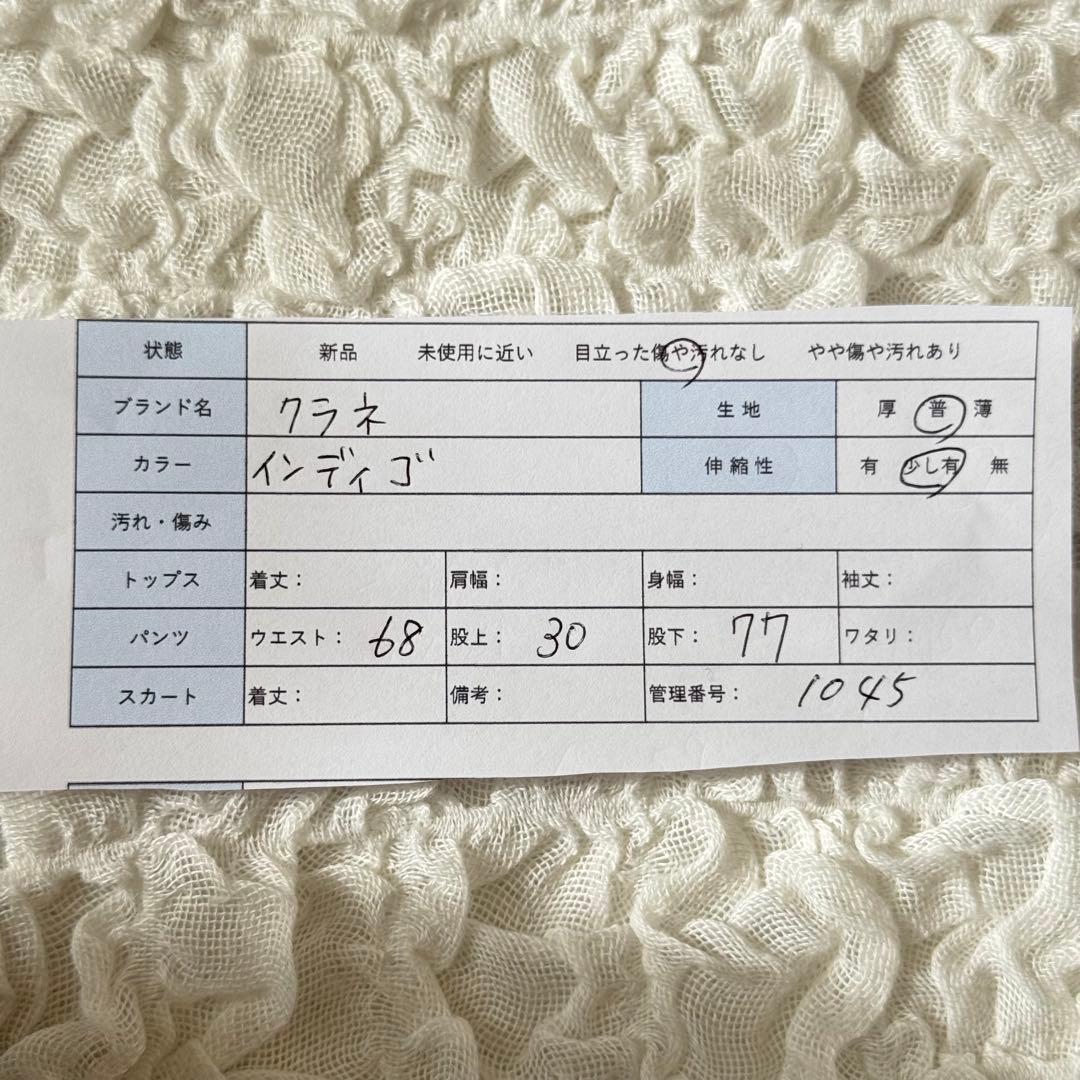 状態 新品 未使用に近い 目立った傷や汚れなし やや傷や汚れあり
ブランド名 クラネ 生地 厚 普 薄
カラー インディゴ 伸縮性 有 少し有 無
汚れ・傷み
トップス 着丈： 肩幅： 身幅： 袖丈：
パンツ ウエスト： 68 股上： 30 股下： 77 ワタリ：
スカート 着丈： 備考： 管理番号： 1045